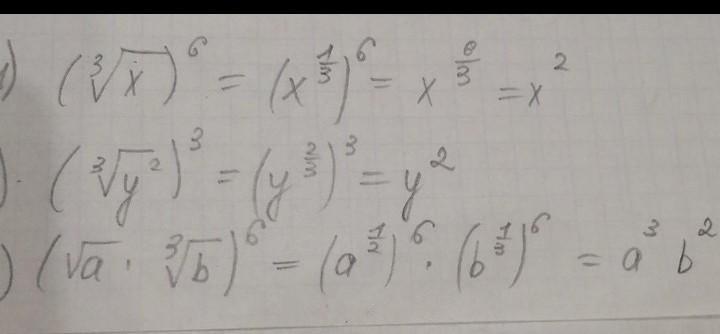 1) (∛x)⁶ = (x^{1/3})⁶ = x^{6/3} = x²
). (∛y²)³ = (y^{2/3})³ = y²
) (√a · ∛b)⁶ = (a^{1/2})⁶ · (b^{1/3})⁶ = a³ b²